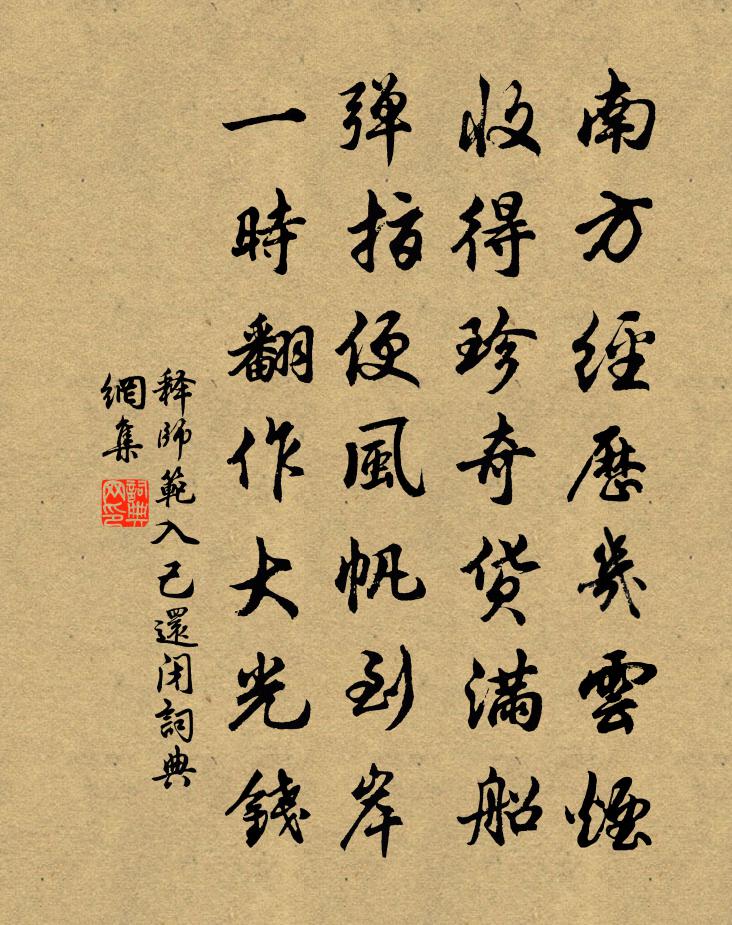 南方經歷幾雲煙
收得珍奇貨滿船
弹指便風帆到岸
一時翻作大光錢
释師範入己還闭詞典
網集
詞典
网印